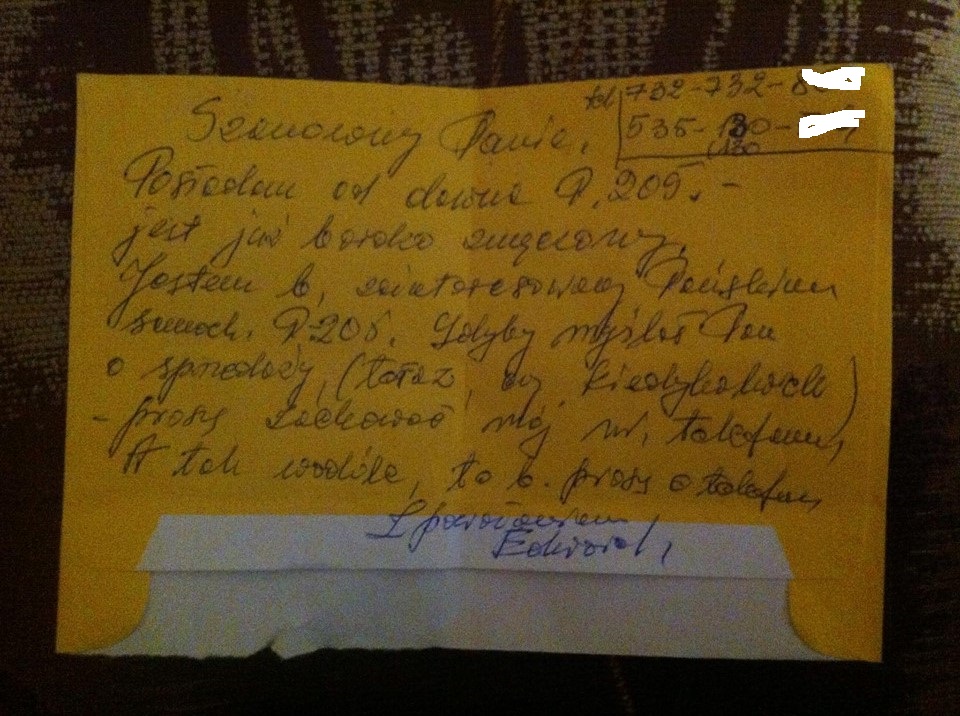 tel 732-732-8
535-130-
(130
Szanowny Panie,
Posiadam od dawna P. 205. -
jest już bardzo zmęczony,
Jestem b. zainteresowany Pańskim
samoch. P.205. Gdyby myślał Pan
o sprzedaży, (teraz, czy kiedykolwiek)
- proszę zachować mój nr. telefonu,
A tak wogóle, to b. proszę o telefon,
Z poważaniem
Edward,